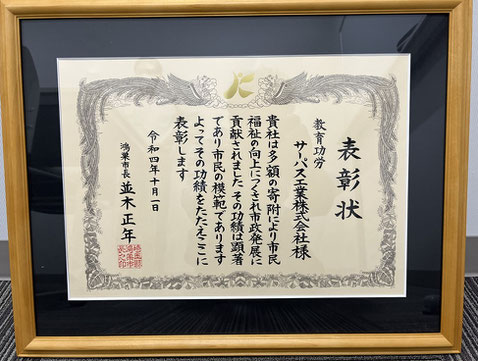 表彰状
教育功労
サーパス工業株式会社様
貴社は多額の寄附により市民
福祉の向上につくされ市政発展に
貢献されましたその功績は顕著
であり市民の模範であります
よってその功績をたたえここに
表彰します
令和四年十月一日
鴻巣市長 並木正年